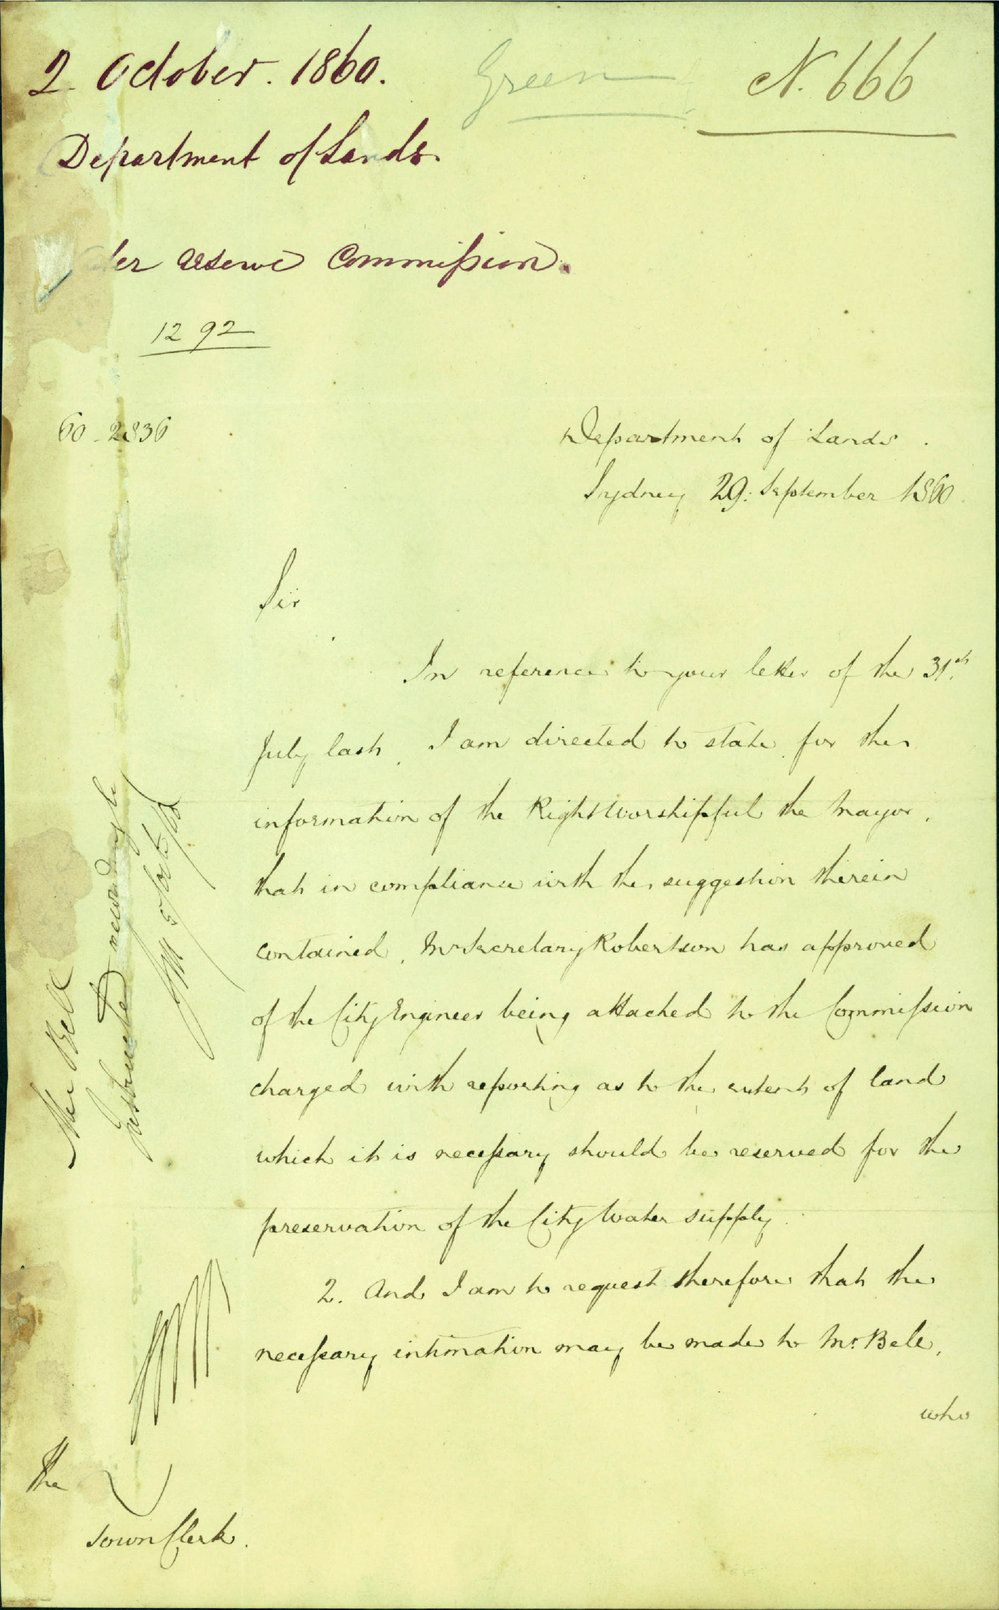 2 October. 1860.
Green
N. 666
Department of Lands.
ter Reserve Commission.
1292
60-2836
Department of Lands.
Sydney 29: September 1860.
Sir
In reference to your letter of the 31st
July last, I am directed to state for the
information of the Right Worshipful the Mayor,
that in compliance with the suggestion therein
contained, Mr Secretary Robertson has approved
of the City Engineer being attached to the Commission
charged with reporting as to the extent of land
which it is necessary should be reserved for the
preservation of the City Water supply.
2. And I am to request therefore that the
necessary intimation may be made to Mr. Bell,
who
The
Town Clerk.
Mr Bell
Instructed accordingly
5 Oct/60